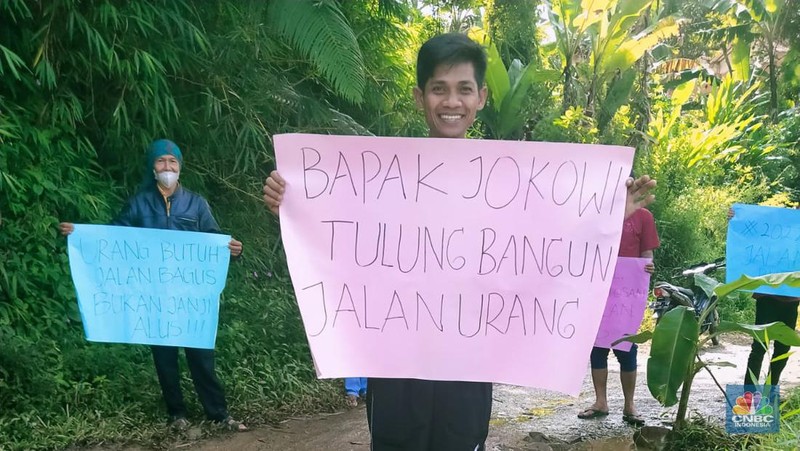 BAPAK JOKOWI
TULUNG BANGUN
JALAN URANG
URANG BUTUH
JALAN BAGUS
BUKAN JANJI
ALUS!!!
JALAN
CNBC
INDONESIA